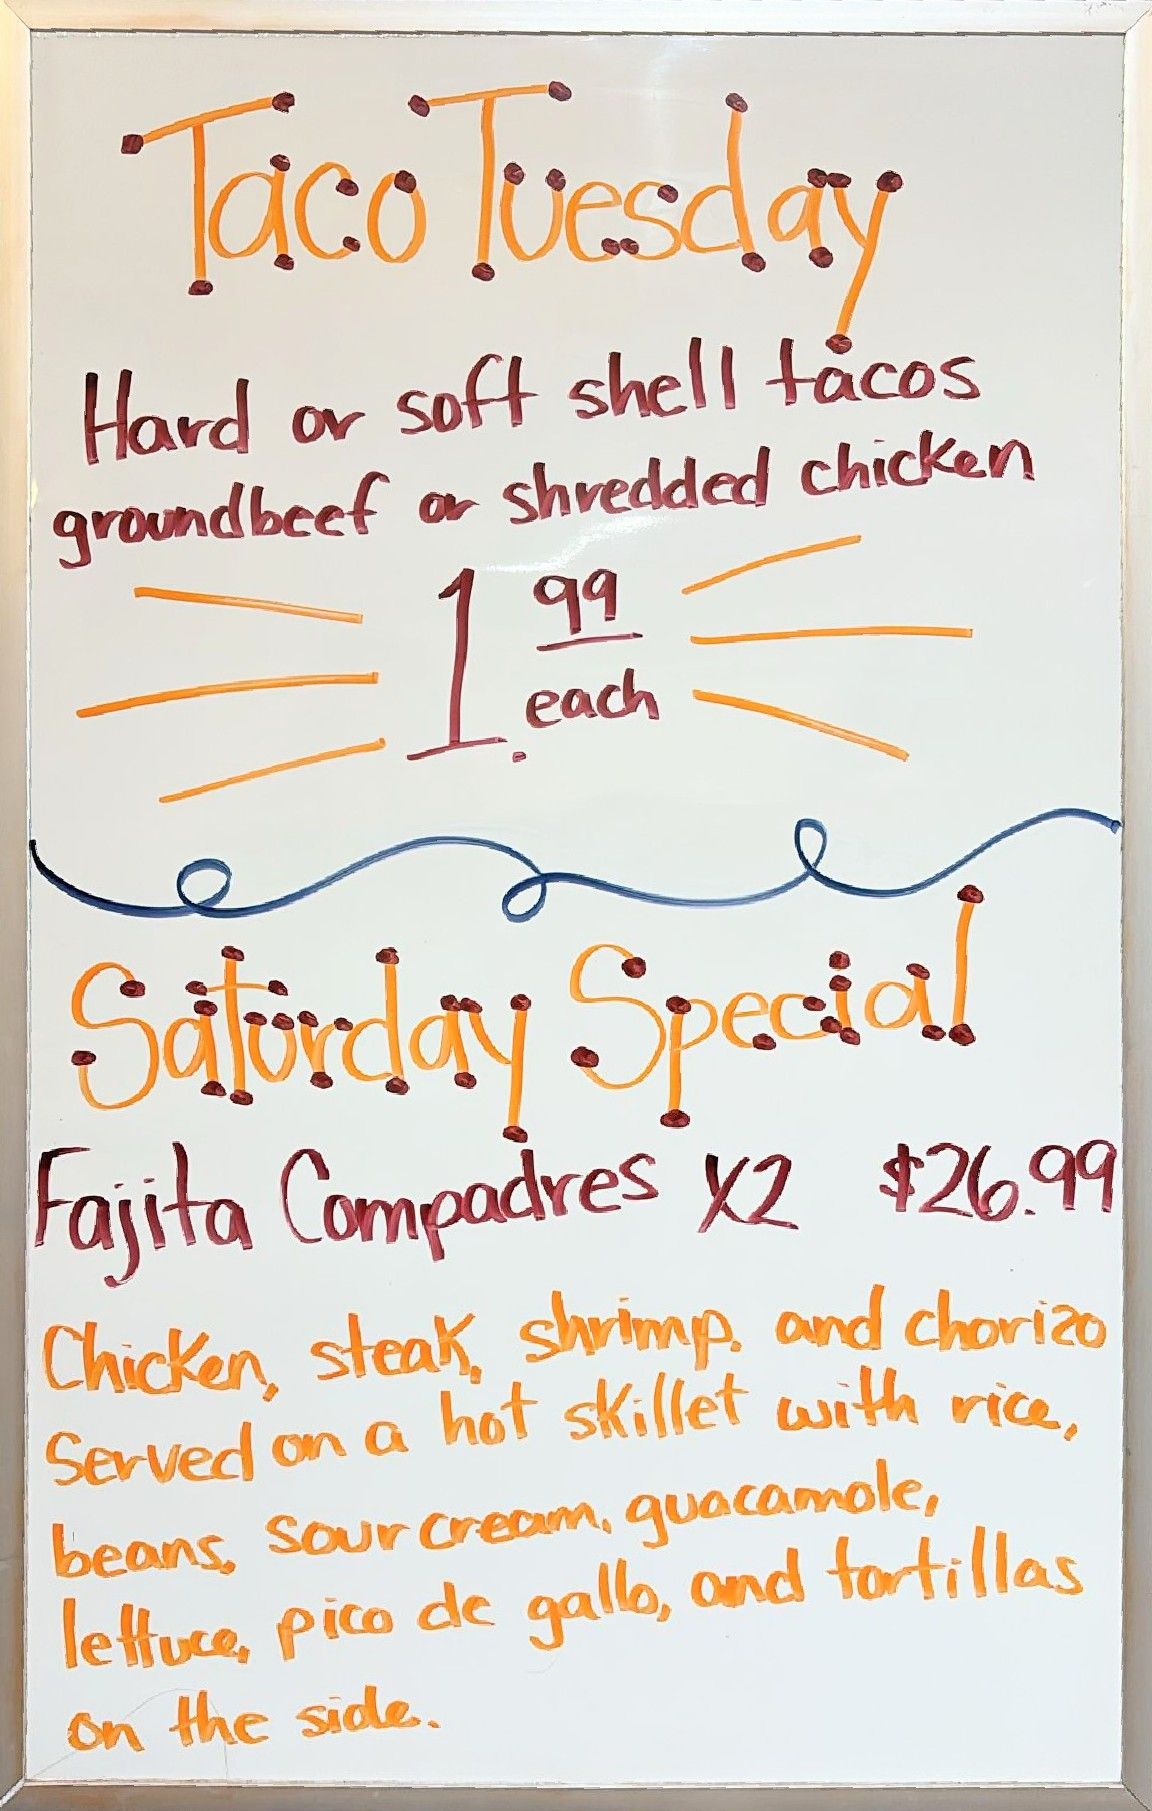 Taco Tuesday
Hard or soft shell tacos
groundbeef or shredded chicken
1.99
each
Saturday Special
Fajita Compadres X2 $26.99
Chicken, steak, shrimp, and chorizo
Served on a hot skillet with rice,
beans, sour cream, guacamole,
lettuce, pico de gallo, and tortillas
on the side.